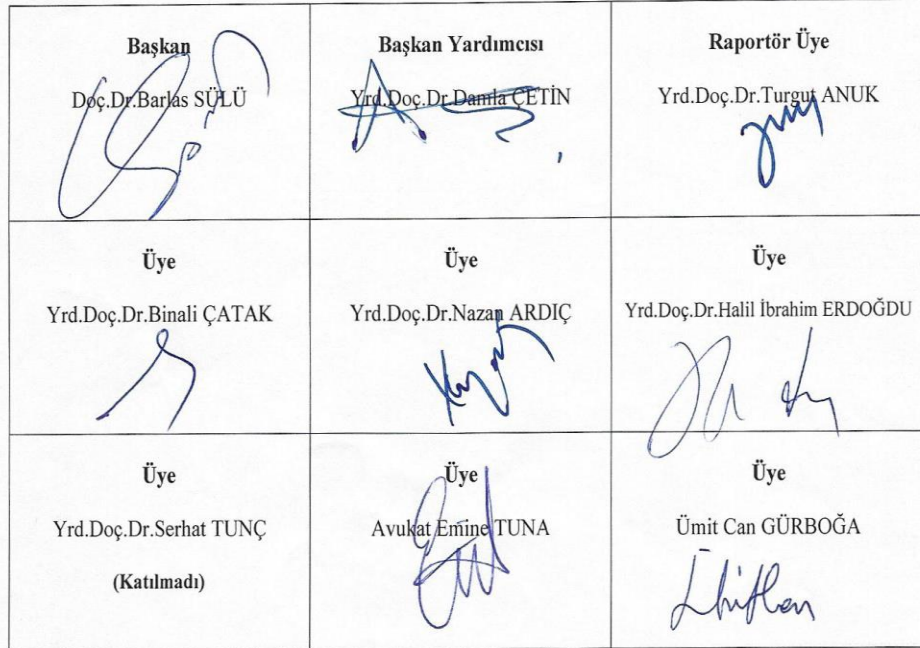 Başkan
Doç.Dr.Barlas SÜLÜ
Başkan Yardımcısı
Yrd.Doç.Dr.Damla ÇETİN
Raportör Üye
Yrd.Doç.Dr.Turgut ANUK
Üye
Yrd.Doç.Dr.Binali ÇATAK
Üye
Yrd.Doç.Dr.Nazan ARDIÇ
Üye
Yrd.Doç.Dr.Halil İbrahim ERDOĞDU
Üye
Yrd.Doç.Dr.Serhat TUNÇ
(Katılmadı)
Üye
Avukat Emine TUNA
Üye
Ümit Can GÜRBOĞA